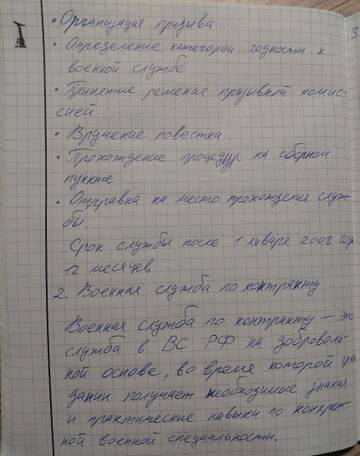 • Организация призыва
• Определение категории годности к
военной службе
• Принятие решение призывной комис-
сией
• Вручение повестки
• Прохождение процедур на сборном
пункте
• Отправка на место прохождения служ-
бы.
Срок службы после 1 января 2008 год
12 месяцев
2. Военная служба по контракту
Военная служба по контракту — это
служба в ВС РФ на доброволь-
ной основе, во время которой гра
данин получает необходимые знания
и практические навыки по конкрет-
ной военной специальности.